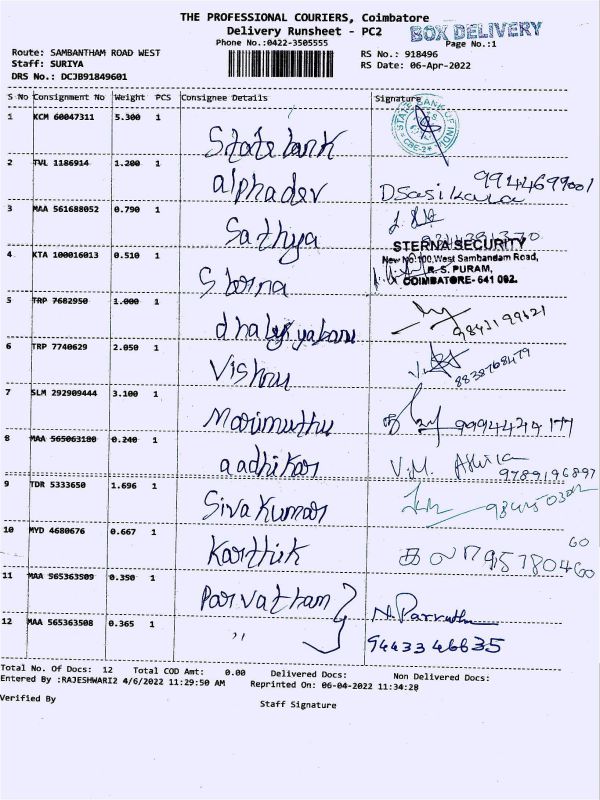 THE PROFESSIONAL COURIERS, Coimbatore
Delivery Runsheet - PC2
BOX DELIVERY
Phone No.:0422-3505555
Page No.:1
Route: SAMBANTHAM ROAD WEST
Staff: SURIYA
DRS No.: DCJB91849601
RS No.: 918496
RS Date: 06-Apr-2022
S No Consignment No Weight PCS Consignee Details Signature
1 KCM 60047311 5.300 1 State bank
STATE BANK OF INDIA
CBE-2
2 TVL 1186914 1.200 1 alphadev DSasikala 9944699001
3 MAA 561688052 0.790 1 Sathya
4 KTA 100016013 0.510 1 Sterna
STERNA SECURITY
New No:100,West Sambandam Road,
R. S. PURAM,
COIMBATORE- 641 002.
5 TRP 7682950 1.000 1 9843199621
6 TRP 7740629 2.050 1 Vishnu 8838768479
7 SLM 292909444 3.100 1 Marimuthu 9994424177
8 MAA 565063180 0.240 1 aadhikar V.M. 9789196897
9 TDR 5333650 1.696 1 Sivakumar
10 MYD 4680676 0.667 1 Karthik
11 MAA 565363509 0.350 1 Parvatham N. Parvatham
12 MAA 565363508 0.365 1 " 9443346635
Total No. Of Docs: 12 Total COD Amt: 0.00 Delivered Docs: Non Delivered Docs:
Entered By :RAJESHWARI2 4/6/2022 11:29:50 AM Reprinted On: 06-04-2022 11:34:28
Verified By
Staff Signature